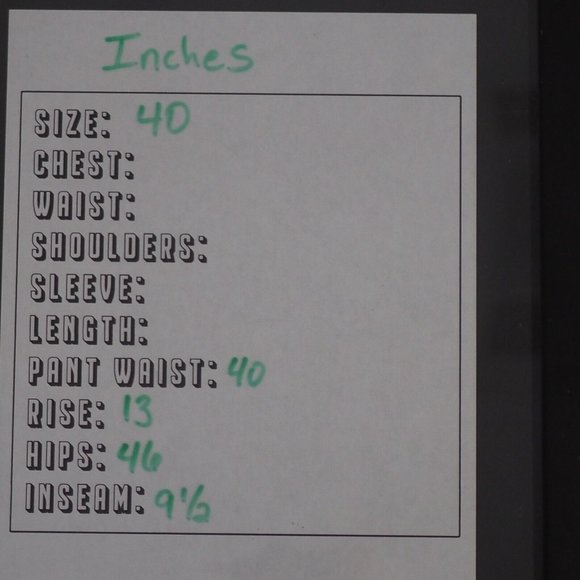 Inches
SIZE: 40
CHEST:
WAIST:
SHOULDERS:
SLEEVE:
LENGTH:
PANT WAIST: 40
RISE: 13
HIPS: 46
INSEAM: 9 1/2